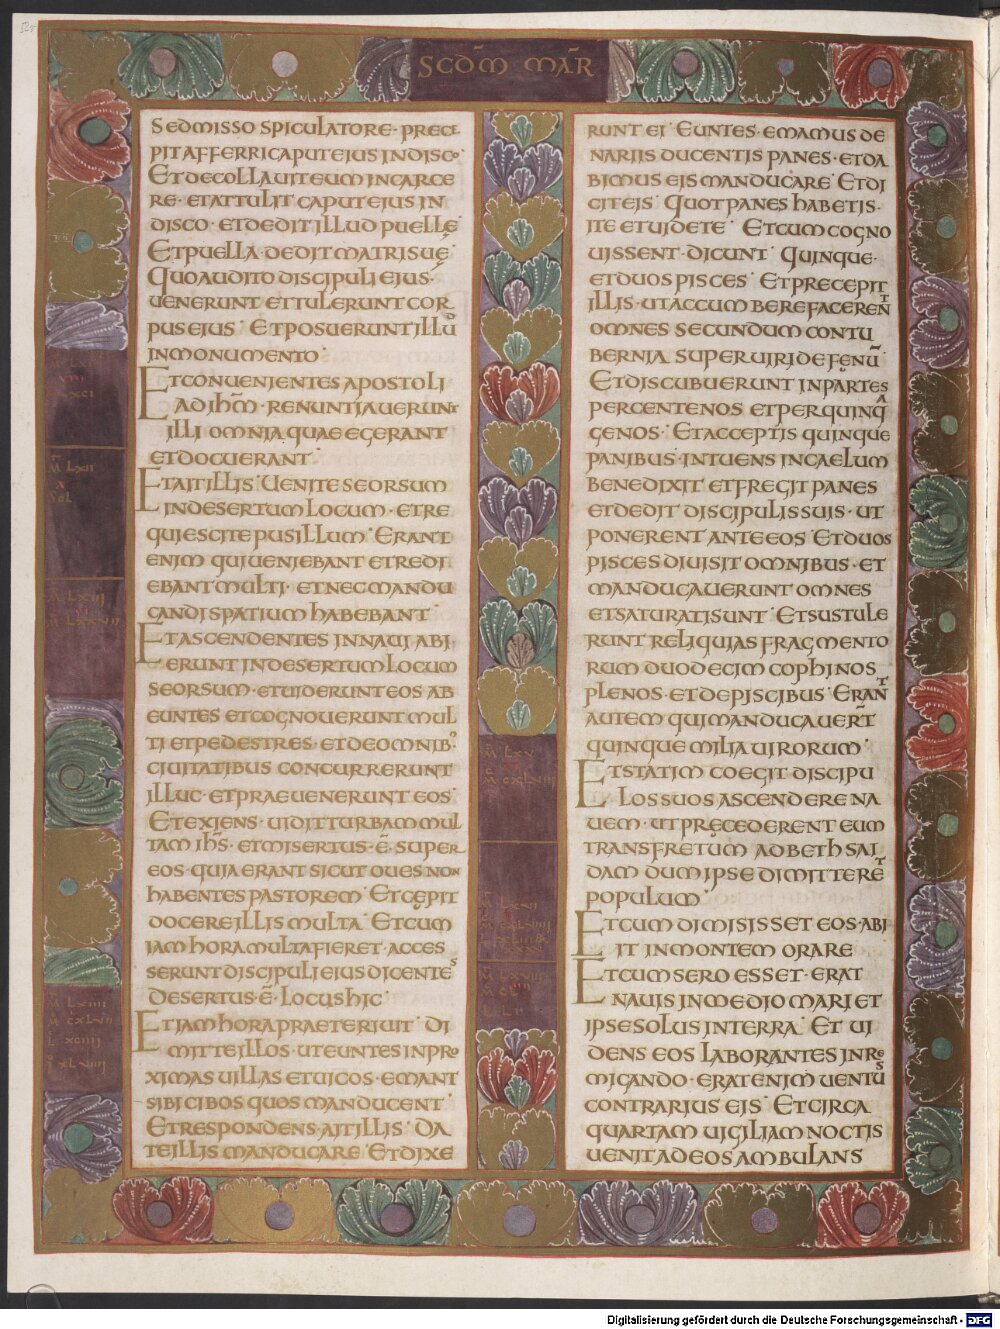 SCDM MAR
SEDMISSO SPICULATORE · PRECE
PIT AFFERRI CAPUT EIUS IN DISCO ·
ET DECOLLAUIT EUM IN CARCE
RE · ET ATTULIT CAPUT EIUS IN
DISCO · ET DEDIT ILLUD PUELLE ·
ET PUELLA · DEDIT MATRI SUE ·
QUO AUDITO DISCIPULI EIUS ·
UENERUNT ET TULERUNT COR
PUS EIUS · ET POSUERUNT ILLUD
IN MONUMENTO ·
ET CONUENIENTES APOSTOLI
AD IHM · RENUNTIAUERUNT
ILLI OMNIA QUAE EGERANT
ET DOCUERANT ·
ET AIT ILLIS · UENITE SEORSUM
IN DESERTUM LOCUM · ET RE
QUIESCITE PUSILLUM · ERANT
ENIM QUI UENIEBANT ET REDI
EBANT MULTI · ET NEC MANDU
CANDI SPATIUM HABEBANT ·
ET ASCENDENTES IN NAUI ABI
ERUNT IN DESERTUM LOCUM
SEORSUM · ET UIDERUNT EOS AB
EUNTES ET COGNOUERUNT MUL
TI ET PEDESTRES · ET DE OMNIB ·
CIUITATIBUS CONCURRERUNT
ILLUC · ET PRAEUENERUNT EOS ·
ET EXIENS · UIDIT TURBAM MUL
TAM IHS · ET MISERTUS · Ē · SUPER
EOS · QUIA ERANT SICUT OUES NON
HABENTES PASTOREM · ET CEPIT
DOCERE ILLIS MULTA · ET CUM
IAM HORA MULTA FIERET · ACCES
SERUNT DISCIPULI EIUS DICENTES
DESERTUS · Ē · LOCUS HIC ·
ET IAM HORA PRAETERIUIT · DI
MITTE ILLOS · UT EUNTES IN PRO
XIMAS UILLAS ET UICOS · EMANT
SIBI CIBOS QUOS MANDUCENT ·
ET RESPONDENS · AIT ILLIS · DA
TE ILLIS MANDUCARE · ET DIXE
RUNT EI · EUNTES · EMAMUS DE
NARIIS DUCENTIS PANES · ET DA
BIMUS EIS MANDUCARE · ET DI
CIT EIS · QUOT PANES HABETIS ·
ITE ET UIDETE · ET CUM COGNO
UISSENT · DICUNT · QUINQUE ·
ET DUOS PISCES · ET PRECEPIT
ILLIS · UT ACCUMBERE FACERENT
OMNES SECUNDUM CONTU
BERNIA SUPER UIRIDE FENŪ ·
ET DISCUBUERUNT IN PARTES
PER CENTENOS ET PER QUINQUA
GENOS · ET ACCEPTIS QUINQUE
PANIBUS · INTUENS IN CAELUM
BENEDIXIT ET FREGIT PANES
ET DEDIT DISCIPULIS SUIS · UT
PONERENT ANTE EOS · ET DUOS
PISCES DIUISIT OMNIBUS · ET
MANDUCAUERUNT OMNES
ET SATURATI SUNT · ET SUSTULE
RUNT RELIQUIAS FRAGMENTO
RUM DUODECIM COPHINOS
PLENOS · ET DE PISCIBUS · ERANT
AUTEM QUI MANDUCAUERT̄
QUINQUE MILIA UIRORUM ·
ET STATIM COEGIT DISCIPU
LOS SUOS ASCENDERE NA
UEM · UT PRĘCEDERENT EUM
TRANS FRETUM AD BETHSAI
DAM DUM IPSE DIMITTERET
POPULUM ·
ET CUM DIMISISSET EOS · ABI
IT IN MONTEM ORARE
ET CUM SERO ESSET · ERAT
NAUIS IN MEDIO MARI ET
IPSE SOLUS IN TERRA · ET UI
DENS EOS LABORANTES IN RE
MIGANDO · ERAT ENIM UENTUS
CONTRARIUS EIS · ET CIRCA
QUARTAM UIGILIAM NOCTIS
UENIT AD EOS AMBULANS
Digitalisierung gefördert durch die Deutsche Forschungsgemeinschaft - DFG